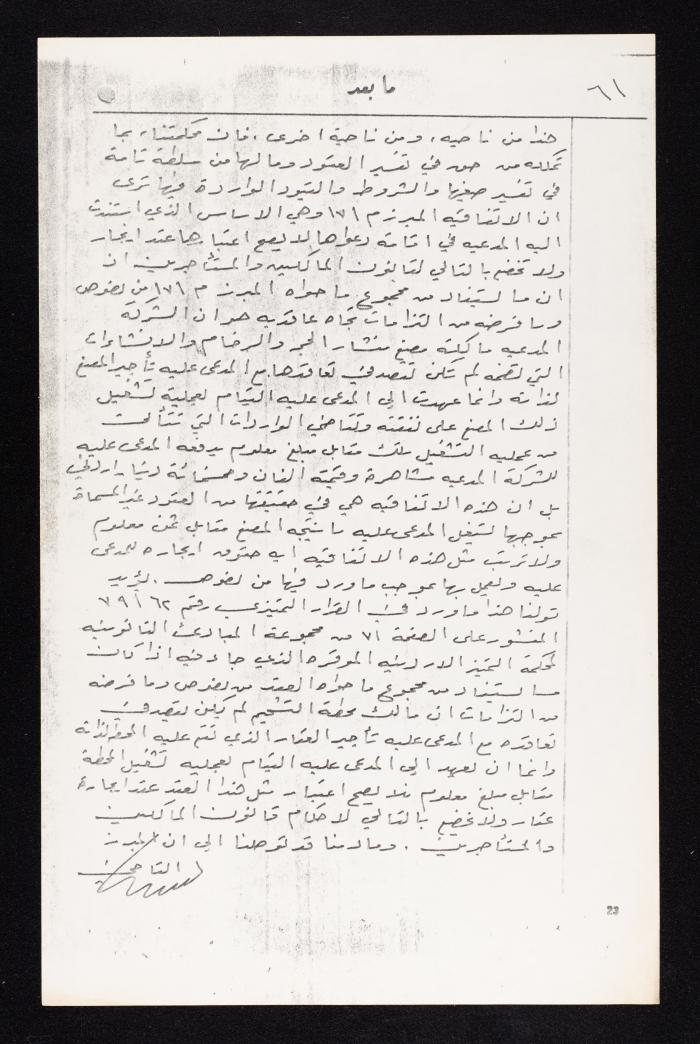 ٦١
ما بعد
هذا من ناحيه، ومن ناحية اخرى، فان محكمتنا، بما
تملكه من حق في تفسير العقود وما لها من سلطة تامة
في تفسير صيغها والشروط والقيود الواردة فيها ترى
ان الاتفاقيه المبرز م ١٧١ وهي الاساس الذي استندت
اليه المدعيه في اقامة دعواها لا يصح اعتبارها عقد ايجار
ولا تخضع بالتالي لقانون المالكين والمستأجرين اذ
ان ما يستفاد من مجموع ما حواه المبرز م ١٧١ من نصوص
وما فرضه من التزامات تجاه عاقديه هو ان الشركة
المدعيه مالكة مصنع منشار الحجر والرخام والانشاءات
التي تضمه لم تكن تقصد في تعاقدها مع المدعى عليه تأجير المصنع
لذاته وانما عهدت الى المدعى عليه القيام لعملية تشغيل
ذلك المصنع على نفقته وتقاضي الواردات التي تتأتى
من عمليه التشغيل تلك مقابل مبلغ معلوم يدفعه المدعى عليه
للشركة المدعيه مشاهرة وقيمته الفان وخمسمائة دينار اردني
بل ان هذه الاتفاقيه هي في حقيقتها من العقود غير المسماة
بموجبها يستغل المدعى عليه ما ينتجه المصنع مقابل ثمن معلوم
ولا ترتب مثل هذه الاتفاقيه ايه حقوق ايجاره للمدعى
عليه ويعمل بها بموجب ما ورد فيها من نصوص. يؤيد
قولنا هذا ما ورد في القرار التميزي رقم ٦٢ / ٧٩
المنشور على الصفحة ٧١ من مجموعة المبادئ القانونيه
لمحكمة التميز الاردنيه الموقره الذي جاء فيه اذا كان
ما يستفاد من مجموع ما حواه العقد من نصوص وما فرضه
من التزامات ان مالك محطة التشحيم لم يكن يقصد في
تعاقده مع المدعى عليه تأجير العقار الذي تقوم عليه المحطه لذاته
وانما ان يعهد الى المدعى عليه القيام بعمليه تشغيل المحطة
مقابل مبلغ معلوم فلا يصح اعتبار مثل هذا العقد عقد ايجارة
عقار ولا يخضع بالتالي لاحكام قانون المالكين
والمستأجرين. وما دمنا قد توصلنا الى ان المبرز
القاضي
23